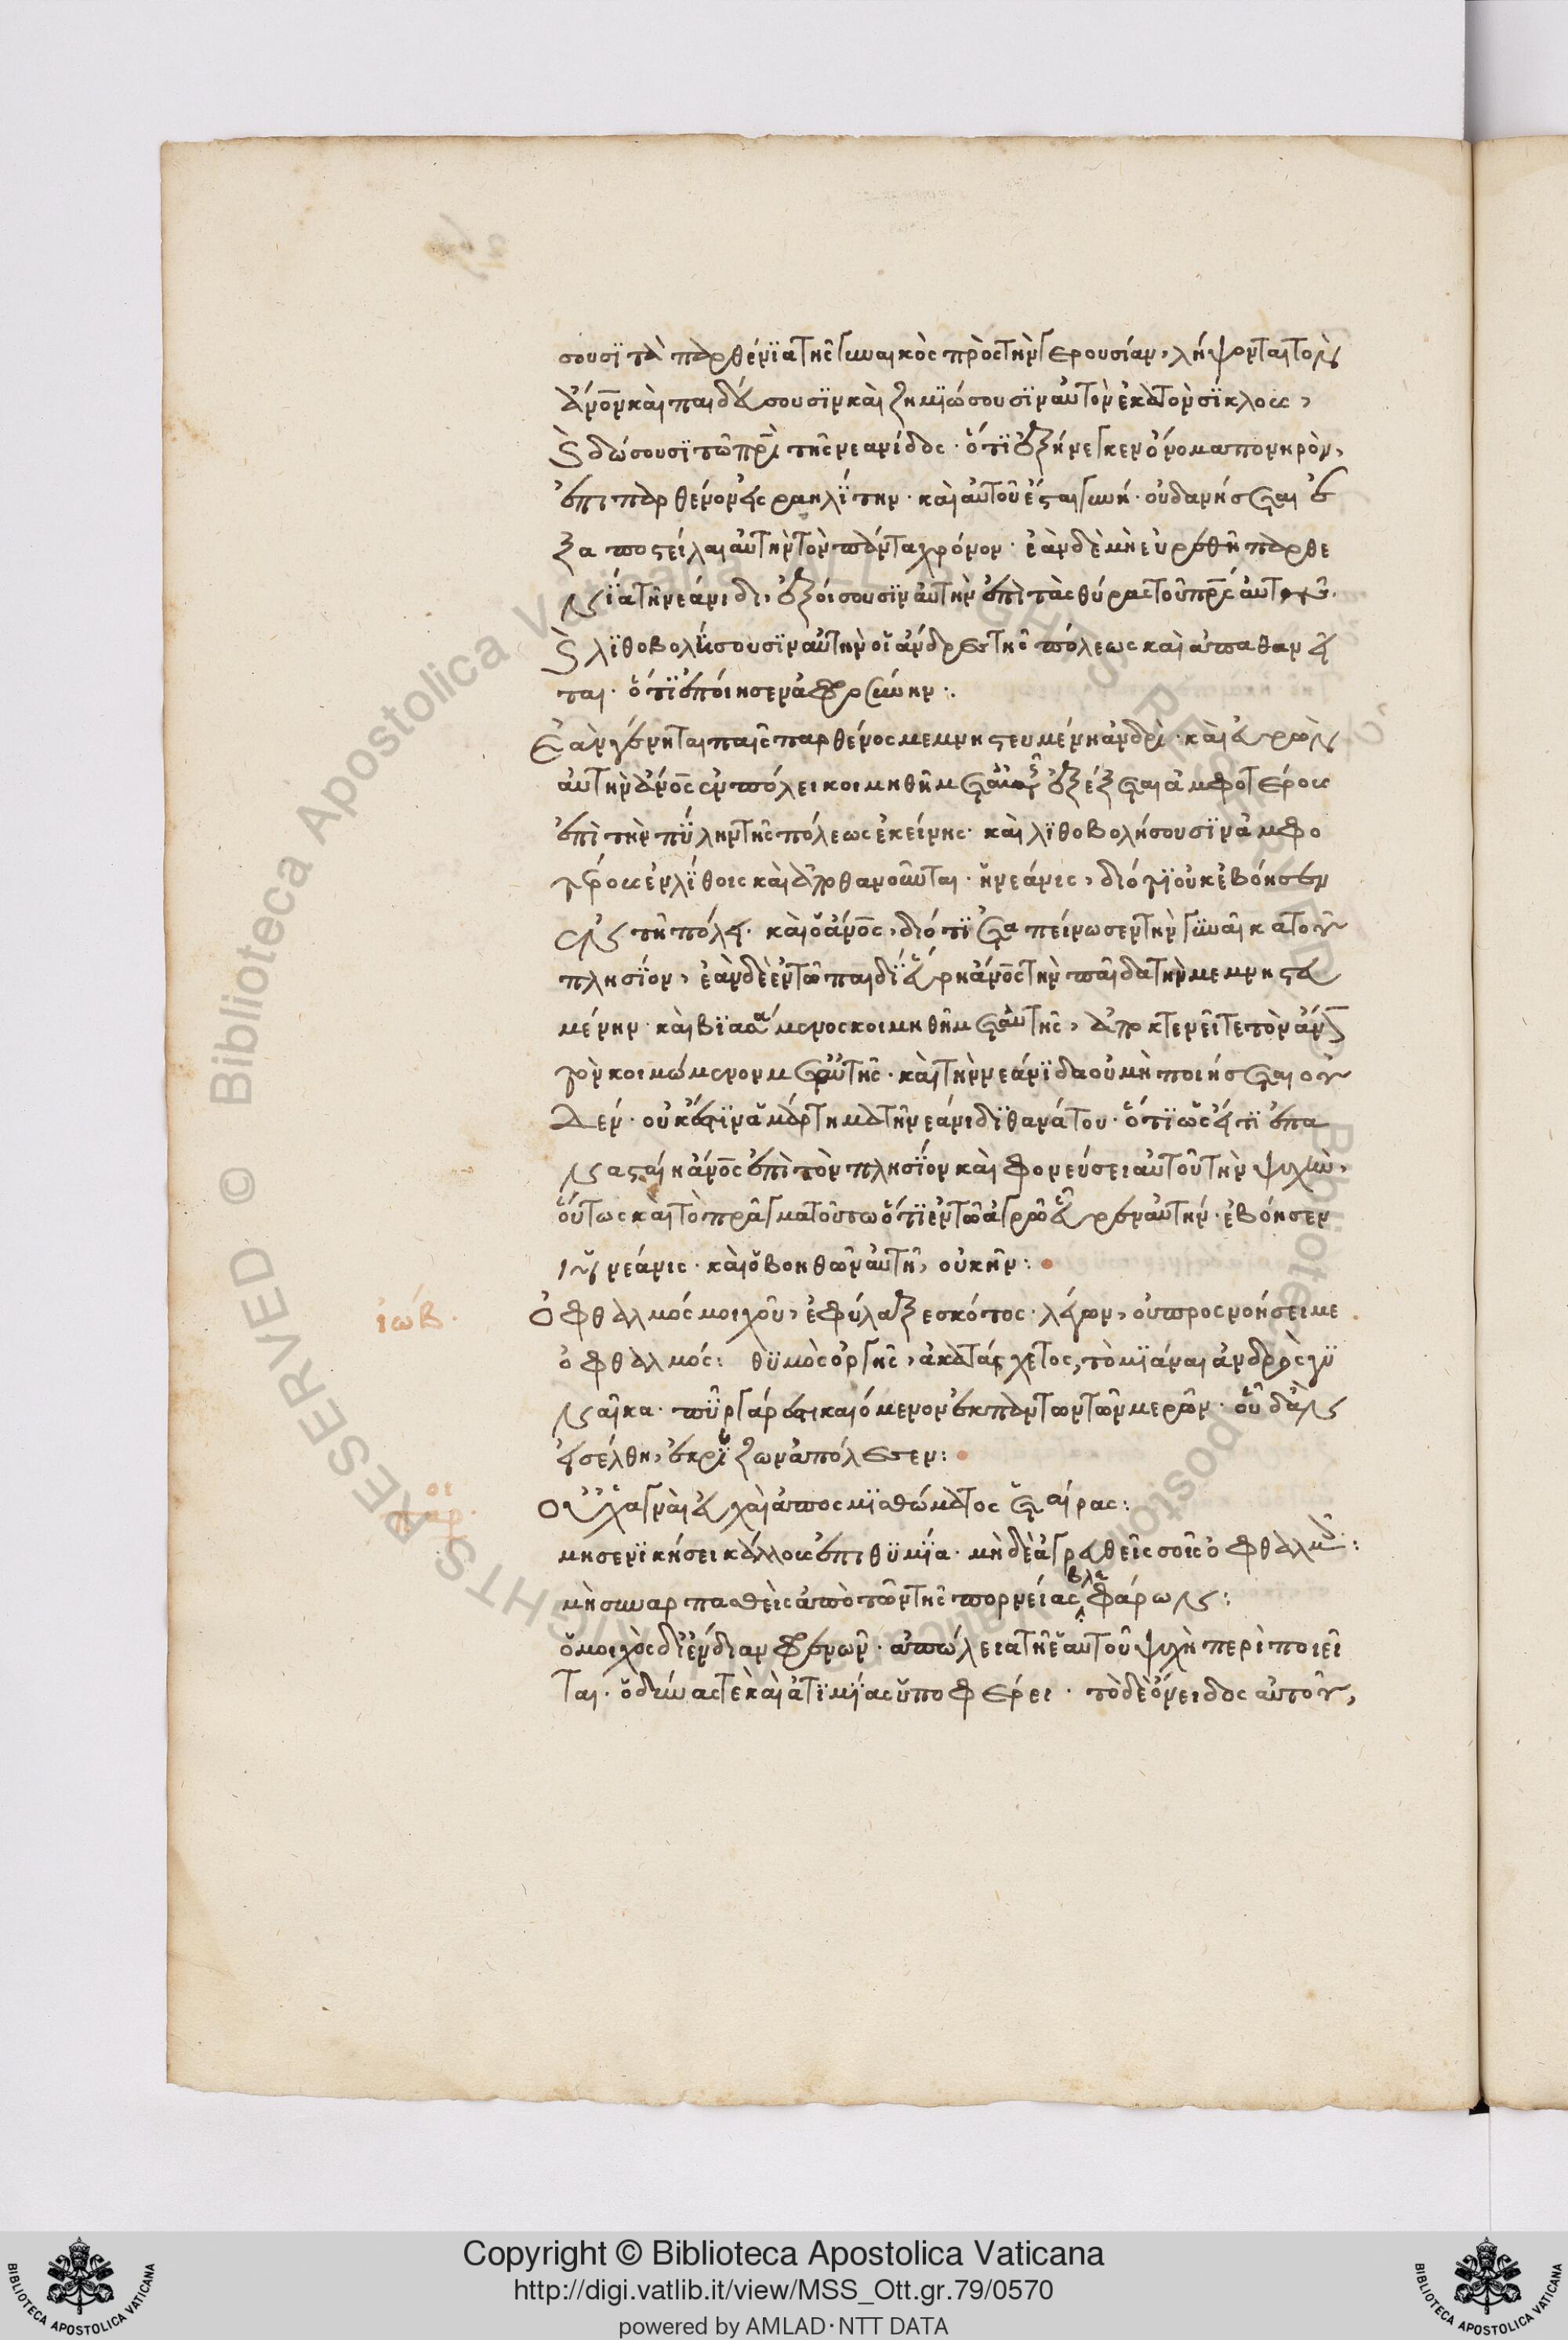 σουσϊ τὰ παρθένϊα τῆς γυναικὸς πρὸς τὴν γερουσίαν, λήψονται τὸν
ἄνο̅ν καὶ παιδεύσουσϊν καὶ ζημϊώσουσϊν αὐτὸν ἑκατὸν σΐκλους,
καὶ δώσουσϊ τῶ πρ̅ι τῆς νεανίδος· ὅτϊ ἐξήνεγκεν ὄνομα πονηρὸν,
ἐπι παρθένον ἰσραηλΐτην· καὶ αὐτοῦ ἔσται γυνή· οὐ δανήσεται ἐ
ξαποστείλαι αὐτὴν τὸν πάντα χρόνον· ἐὰν δὲ μὴ εὑρέθη παρθε
νεῖα τῆ νεάνιδι, ἐξοίσουσϊν αὐτὴν ἐπὶ τὰς θύρας τοῦ πρ̅ς αὐτῆς.
καὶ λϊθοβολήσουσϊν αὐτὴν οἵ ἄνδρες τῆς πόλεως καὶ ἀπαθανεῖ
ται· ὅτϊ ἐποίησεν ἀφροσύνην:
Ἐὰν γένηται παῖς παρθένος μεμνηστευμένη ἀνδρὶ· καὶ εὑρὼν
αὐτὴν ἄνο̅ς ἐν πόλει κοιμηθῆ μετ' αὐτῆς ἐξέξεται ἀμφοτέρους
ἐπὶ τὴν πΰλην τῆς πόλεως ἐκείνης· καὶ λϊθοβολήσουσϊν ἀμφο
τέρους ἐν λΐθοις καὶ ἀποθανοῦνται· ἡ νεάνις, διότϊ οὐκ ἐβόησεν
ἐν τῆ πόλει· καὶ ὅ ἄνο̅ς, διότϊ ἐταπείνωσεν τὴν γυναῖκα τοῦ
πλησΐον, ἐὰν δὲ ἐν τῶ παιδΐ εὕρη ἄνο̅ς τὴν παῖδα τὴν μεμνηστευ
μένην· καὶ βϊασάμενος κοιμηθῆ μετ' αὐτῆς, ἀποκτενεῖτε τὸν ἄν̅
νον κοιμώμενον μετ' αὐτῆς· καὶ τὴν νεάνϊδα οὐ μὴ ποιήσεται οὐ
δεν· οὐκ ἔστϊν ἅμάρτημα τῆ νεάνιδϊ θανάτου· ὅτϊ ὡς εἴ τϊ ἐπα
ναστα΄ιη ἄνο̅ς ἐπὶ τὸν πλησΐον καὶ φονεύσει αὐτοῦ τὴν ψυχὴν,
οὕτως καὶ τὸ πρᾶγμα τοῦτω ὅτϊ ἐν τῶ ἀγρῶ εὗρεν αὐτὴν· ἐβόησεν
ἡ νεάνις· καὶ ὅ βοηθῶν αὐτῆ, οὐκ ἦν:
ἰώβ. Ὀφθαλμός μοιχοῦ, ἐφύλαξε σκότος· λέγων, οὐ προσνοήσει με
ὀφθαλμός: θϋμὸς ὀργῆς, ἀκατάσχετος, τὸ μϊάναι ἀνδρὸς γϋ
ναῖκα· πῦρ γάρ ἐστι καιόμενον ἐκ πάντων τῶν μερῶν· οὗ δ' ἂν
εἰσέλθη, ἐκ ρΐζων ἀπόλεσεν:
παροι Οὐχ ἅγναὶ εὐχαὶ ἀπὸ σμϊσθώματος ἑταίρας:
μή σε νϊκήσει κάλλους ἐπιθϋμΐα· μὴ δὲ ἀγρευθεῖς σοῖς ὀφθαλμοῖς:
μὴ συναρπασθεὶς ἀπὸ τῶν τῆς πορνείας βλεφάρων:
ὅ μοιχὸς δϊ' ἔνδιαν φρενῶν· ἀπώλεια τῆ ἑαυτοῦ ψυχὴ περὶποιεῖ
ται· ὅδύνας τὲ καὶ ἀτϊμΐας ὕποφέρει· τὸ δὲ ὄνειδος αὐτοῦ,
Copyright © Biblioteca Apostolica Vaticana
http://digi.vatlib.it/view/MSS_Ott.gr.79/0570
powered by AMLAD·NTT DATA